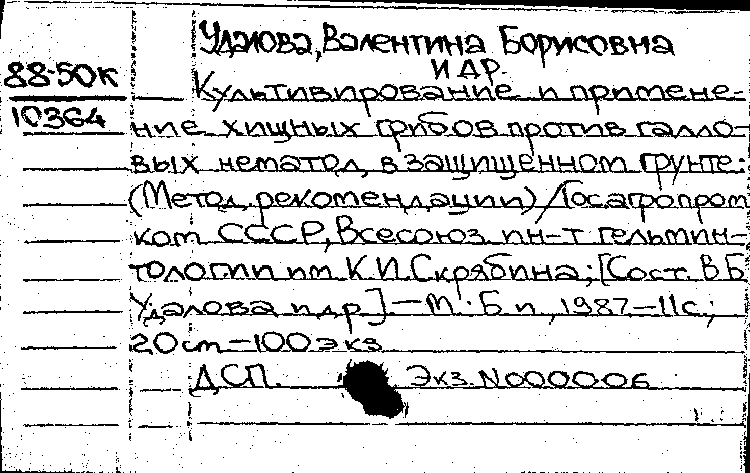 Удалова, Валентина Борисовна
и др.
88-50к
10364
Культивирование и примене-
ние хищных грибов против галло-
вых нематод в защищенном грунте:
(Метод. рекомендации) / Госагропром
ком СССР, Всесоюз. ин-т гельмин-
тологии им. К. И. Скрябина; [Сост. В. Б.
Удалова и др.] — М.: Б. и., 1987 — 11 с.;
20 см — 100 экз
ДСП. Экз. N000006